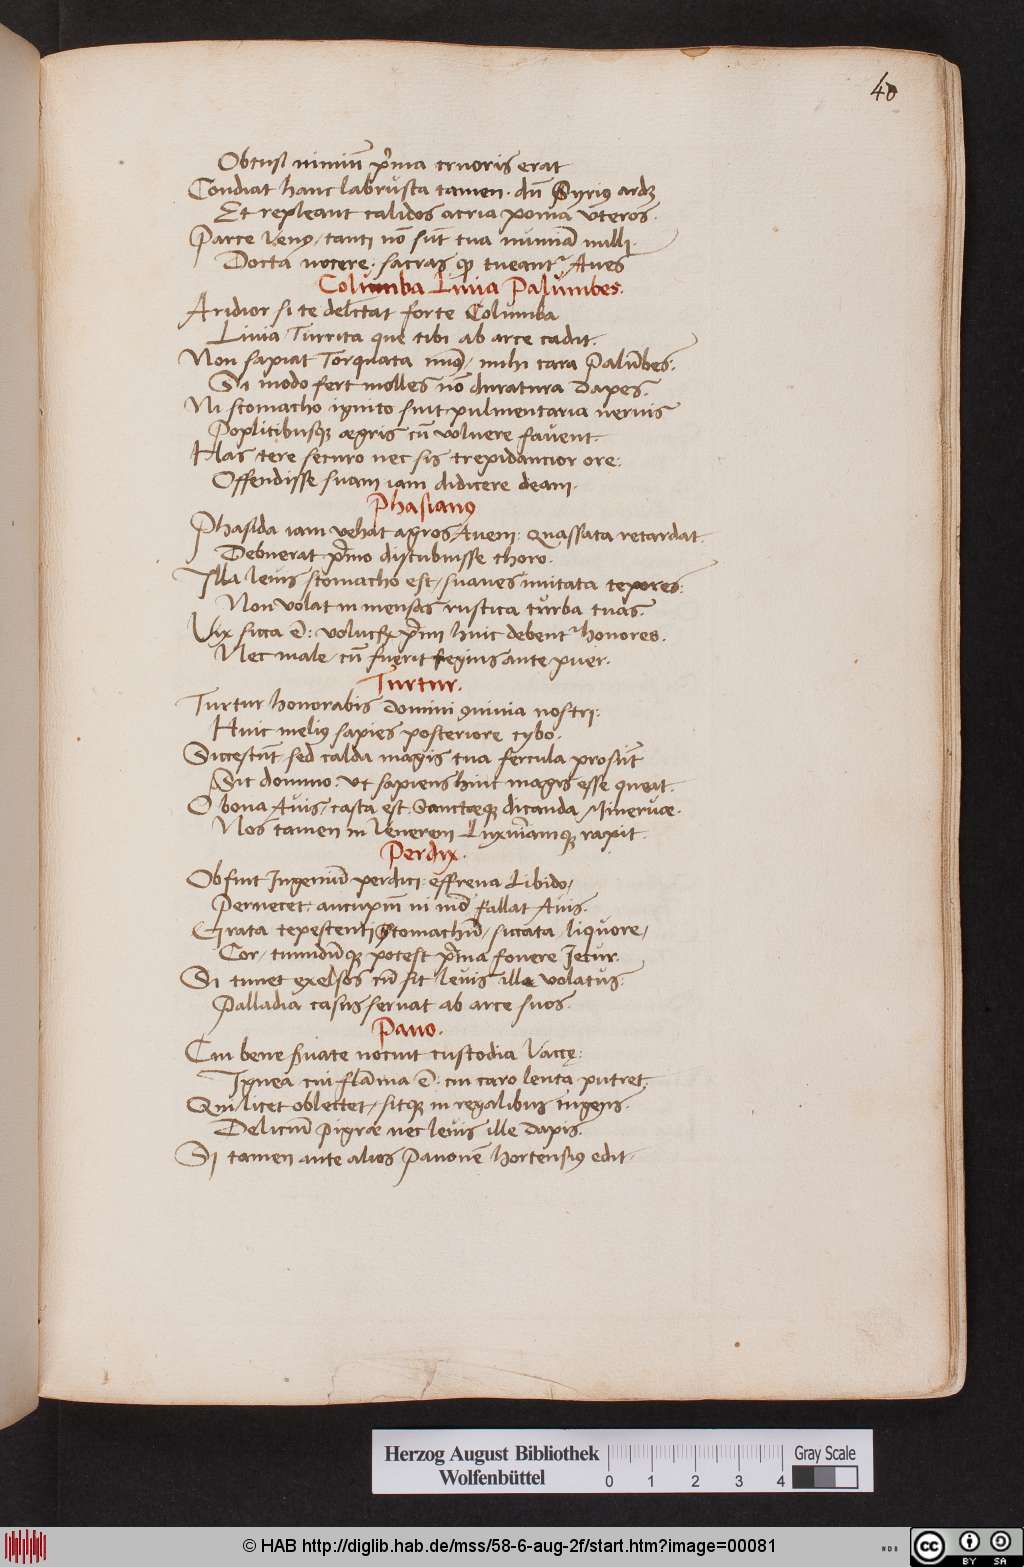 40
Obtusi nimiū p̄ma cruoris erat
Condiat hanc labrusca tamen. dū Syriꝰ ardꝫ
Et repleant calidos acria poma uteros.
Parce Venꝰ, tanti nō sūt tua numīa nulli.
Docta nocere: sacras ꝙ tueantᷣ Aues
Columba Liuia Palumbes.
Aridior si te delectat forte Columba
Liuia Turrita que tibi ab arce cadit.
Non sapiat Torquata minꝰ, mihi cara Palūbes.
Si modo fert molles nō duratura dapes.
Ni stomacho ignito sint pulmentaria neruis
Poplitibusqꝫ ægris cū voluere fauent.
Has tere securo nec sis trepidancior ore:
Offendisse suam iam didicere deam.
Phasianꝰ
Phasida iam vehat agros Auem: quassata retardat.
Debuerat p̄mo discubuisse thoro.
Illa leuis stomacho est, suaues imitata tepores:
Non volat in mensas rustica turba tuas.
Vix sicca ē: volucrꝝ p̄mi huic debentᷣ honores.
Nec male, cū fuerit regius ante puer.
Turtur.
Turtur honorabis domini ꝯuiuia nostri:
Huic meliꝰ sapies posteriore cybo.
Siccescūt, sed calda magis tua fercula prosūt
Sic domino: ut sapiens hinc magis esse queat.
O bona Auis, casta est, Sanctæqꝫ dicanda Mineruæ.
Nos tamen in Venerem Luxuriamqꝫ rapit.
Perdix.
Obfuit Ingeniū perdici: effrena Libido,
Pernecet: aucupiū ni mō fallat Auis.
Grata tepescenti Stomachū, siccata, liquore,
Cor, tumidūqꝫ potest p̄ma fouere Jecur.
Si timet exelsos cū sit leuis illa volatus:
Palladia casus seruat ab arce suos.
Pauo.
Cui bene ẜuate nocuit custodia Vaccę:
Ignea cui flāma ē. cui caro lenta putret.
Qui licet oblectet, sitqꝫ in regalibus ingens.
Deliciū pigræ nec leuis ille dapis.
Si tamen ante alios Pauonē hortensiꝰ edit.
Herzog August Bibliothek
Wolfenbüttel
0 1 2 3 4
Gray Scale
© HAB http://diglib.hab.de/mss/58-6-aug-2f/start.htm?image=00081
WDB
cc BY SA